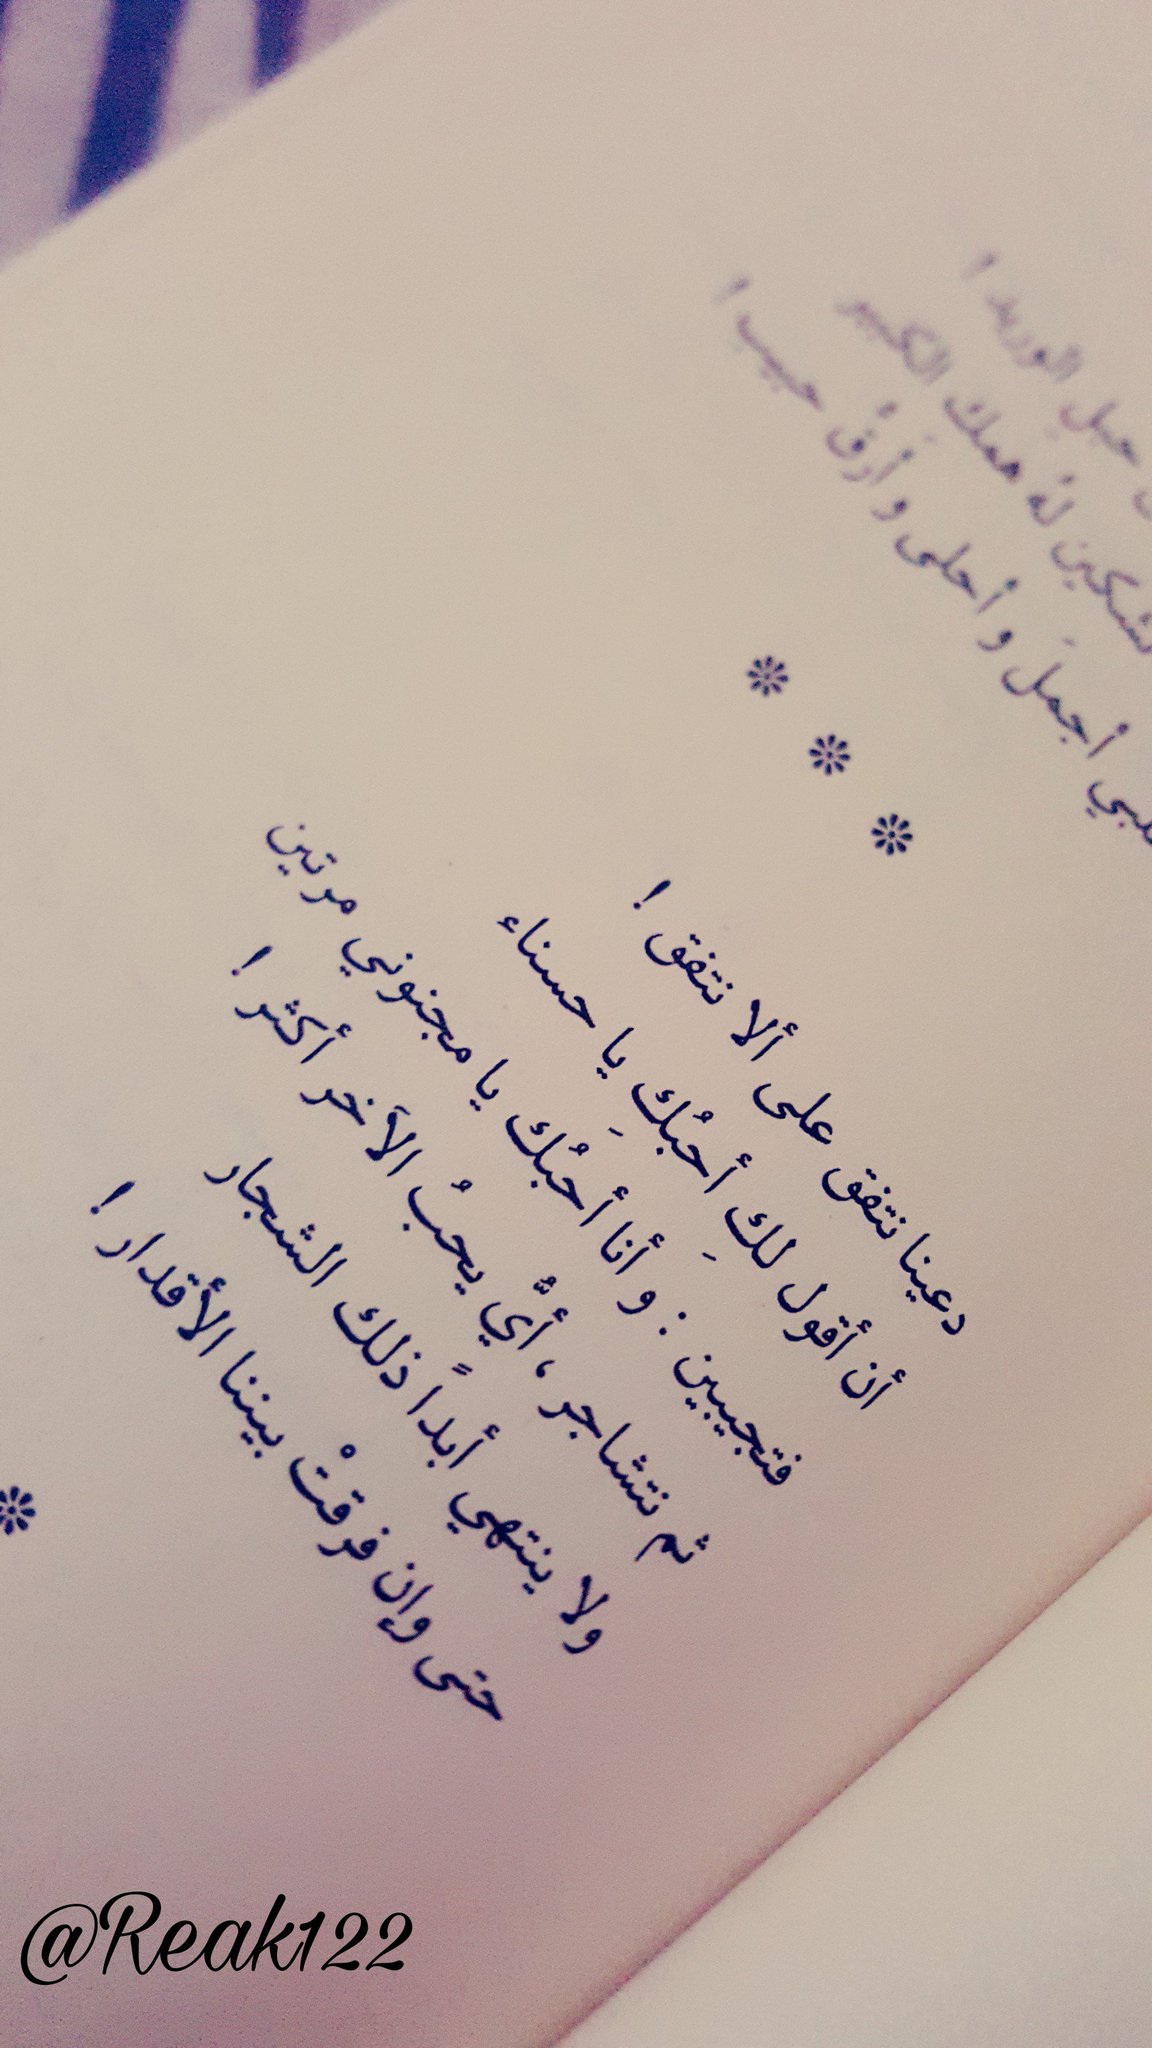 حبل الوريد !
تشكين لهُ همكِ الكبير
أجملَ و أحلى و أرقُ حبيب !
دعينا نتفق على ألا نتفق !
أن أقول لكِ أحبُكِ يا حسناء
فتجيبين : و أنا أحبُك يا مجنوني مرتين
ثم نتشاجر ، أيُّ يحبُ الآخر أكثر !
ولا ينتهي أبداً ذلك الشجار
حتى وإن فرقتْ بيننا الأقدار !
@Reak122